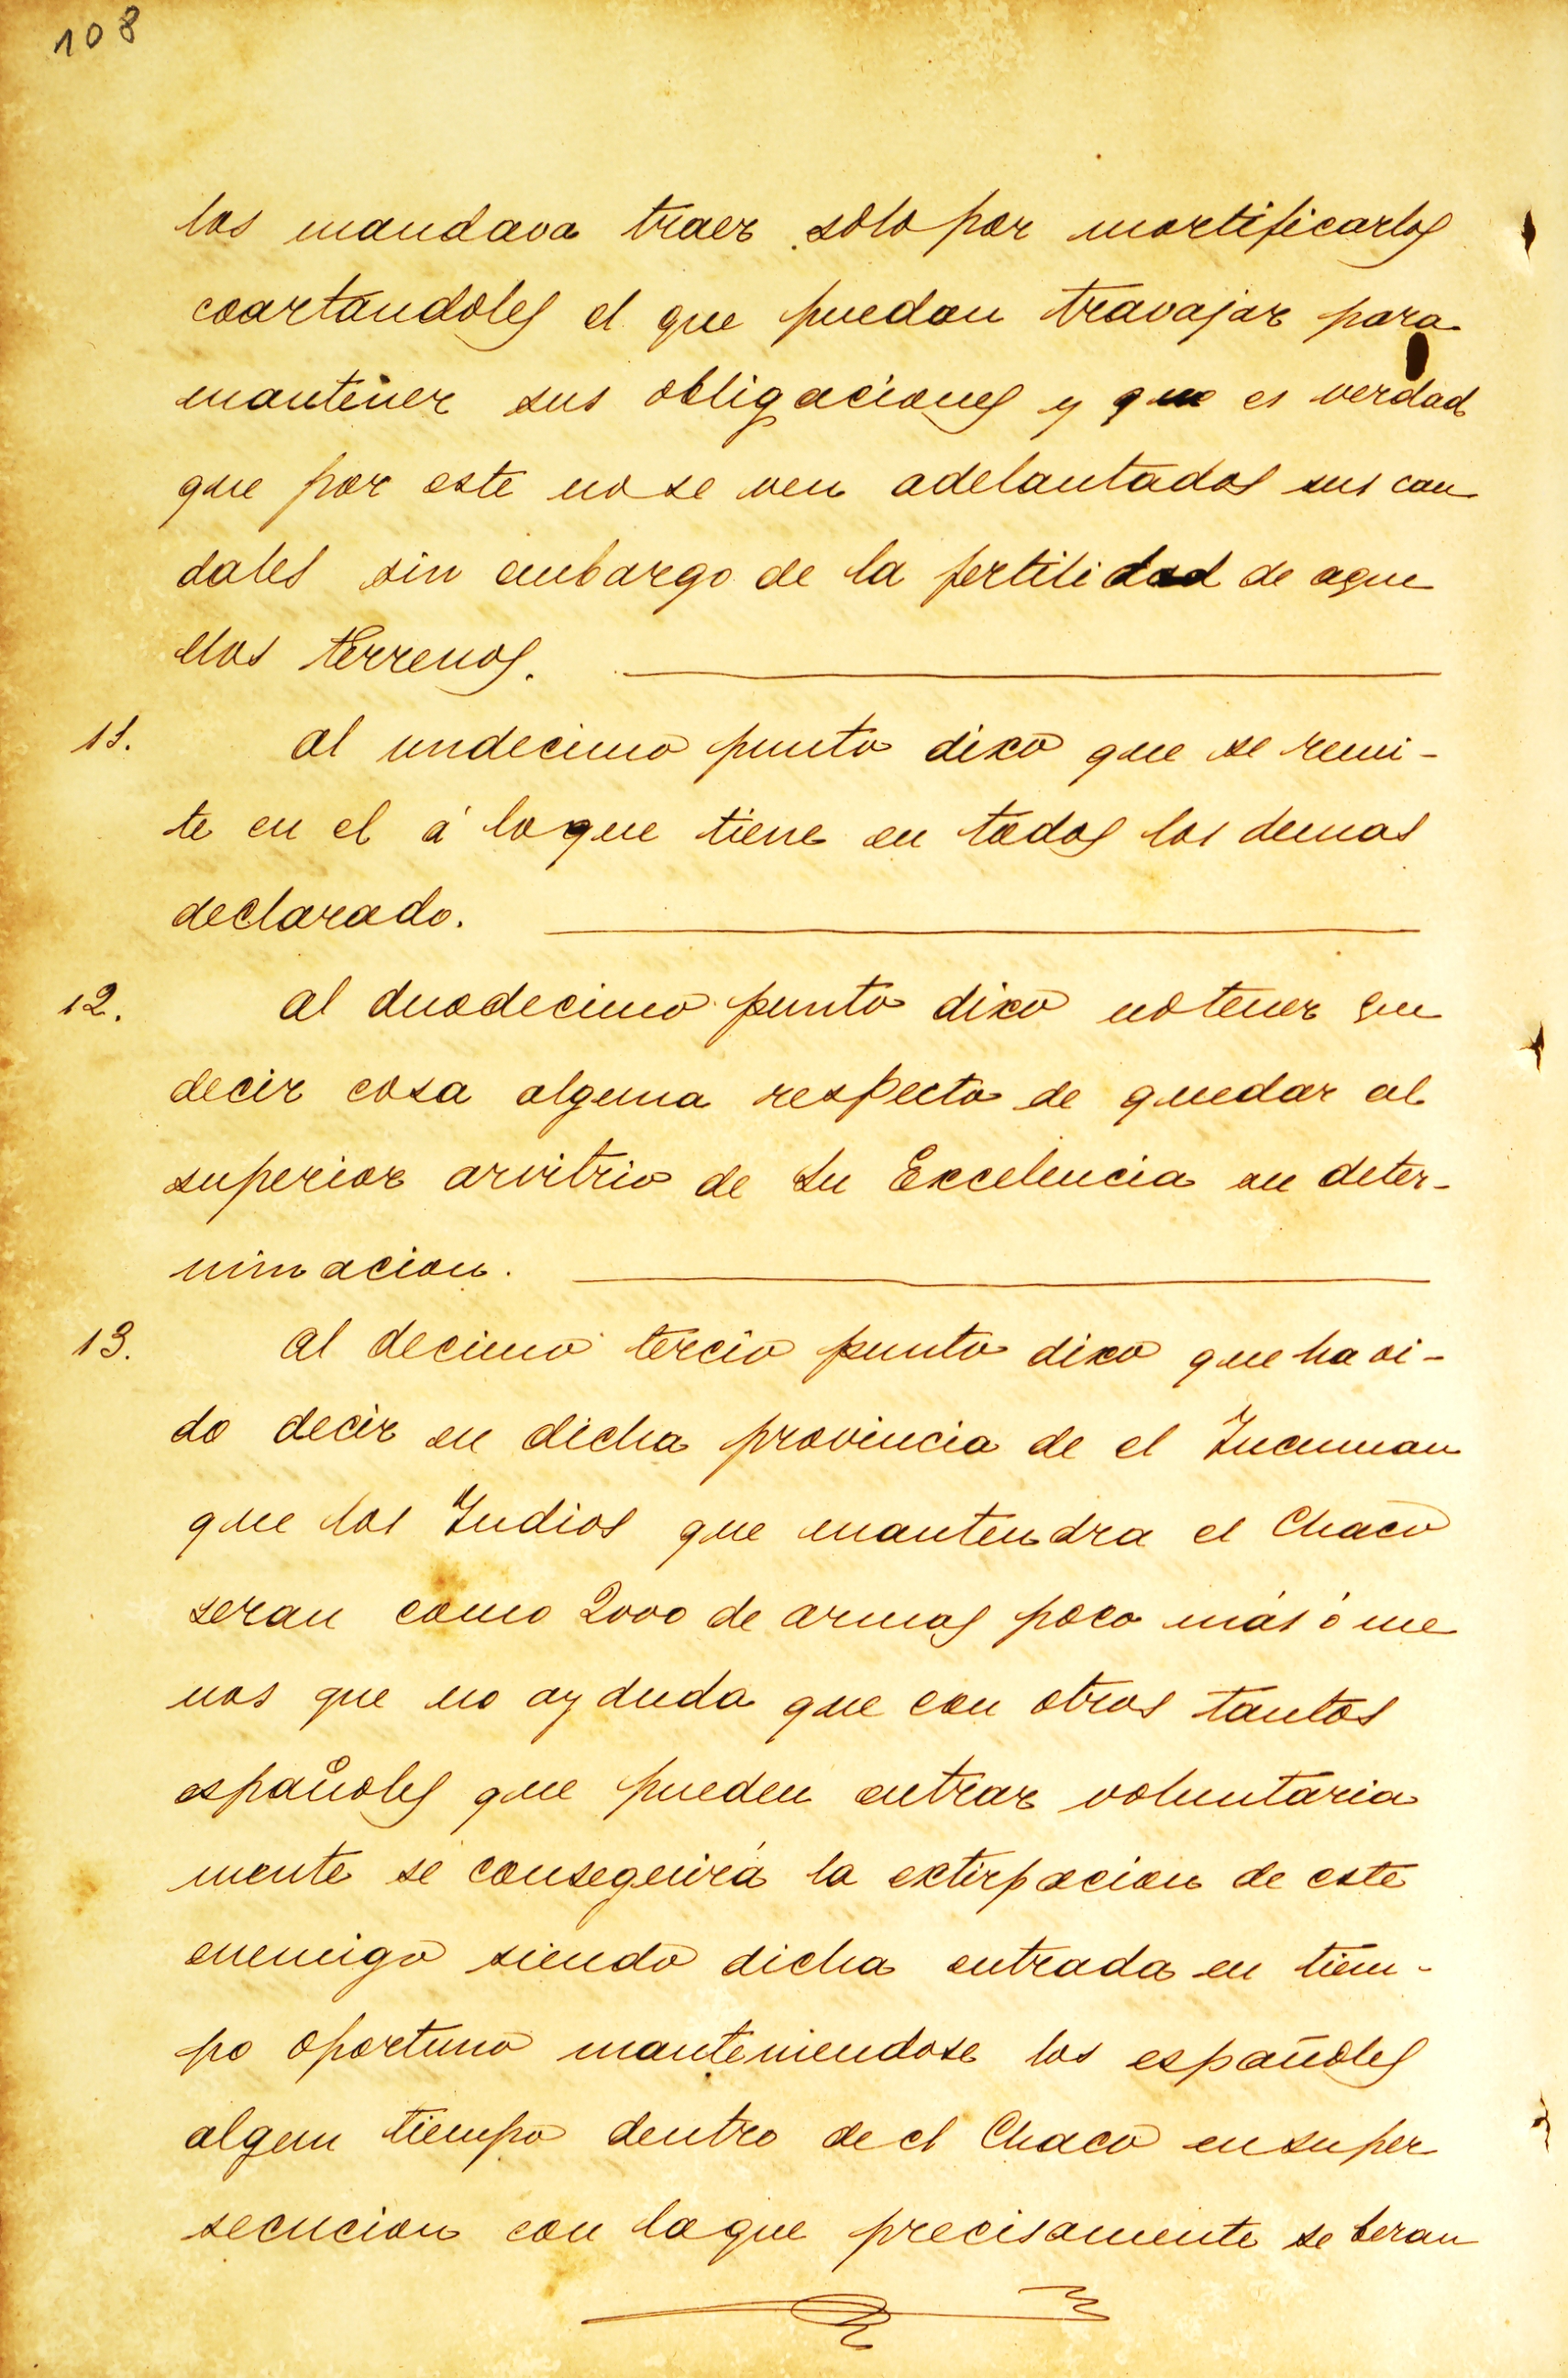 108
los mandava traer solo por mortificarlos
coartándoles el que puedan travajar para
mantener sus obligaciones y que es verdad
que por este no se ven adelantados sus cau
dales sin embargo de la fertilidad de aque
llos terrenos.
11. Al undecimo punto dixo que se remi-
te en el á lo que tiene en todos los demas
declarado.
12. Al duodecimo punto dixo no tener que
decir cosa alguna respecto de quedar al
superior arvitrio de Su Excelencia su deter-
minacion.
13. Al decimo tercio punto dixo que ha oi-
do decir en dicha provincia de el Tucuman
que los Indios que mantendra el Chaco
seran como 2000 de armas poco más ó me
nos que no ay duda que con otros tantos
españoles que pueden entrar voluntaria
mente se conseguirá la extirpacion de este
enemigo siendo dicha entrada en tiem-
po oportuno manteniendose los españoles
algun tiempo dentro de el Chaco en su per
secucion con lo que precisamente se beran